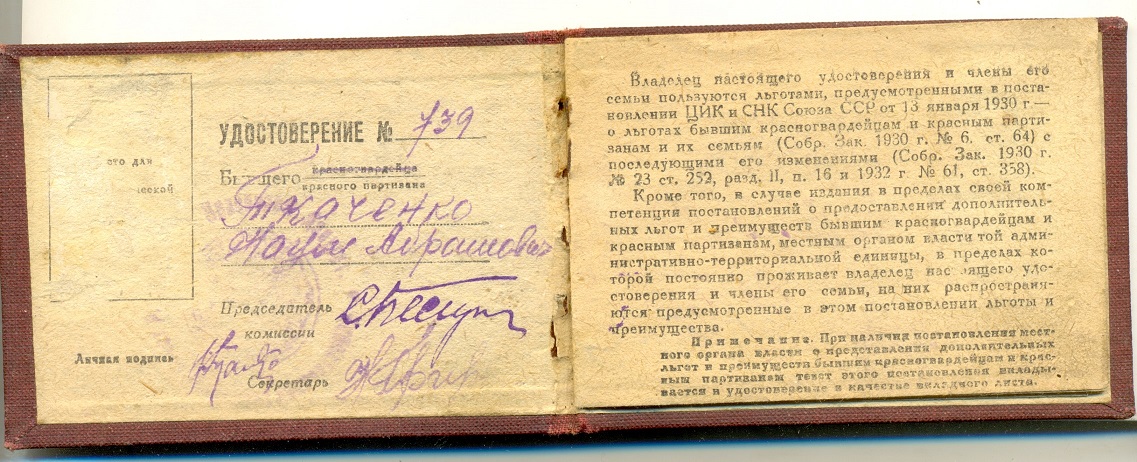 ото для
ческой
УДОСТОВЕРЕНИЕ № 739
Бывшего красногвардейца
красного партизана
Ткаченко
Наум Абрамович
Председатель
комиссии
Личная подпись
Секретарь
Владелец настоящего удостоверения и члены его
семьи пользуются льготами, предусмотренными в поста-
новлении ЦИК и СНК Союза ССР от 13 января 1930 г.—
о льготах бывшим красногвардейцам и красным парти-
занам и их семьям (Собр. Зак. 1930 г. № 6. ст. 64) с
последующими его изменениями (Собр. Зак. 1930 г.
№ 23 ст. 252, разд, II, п. 16 и 1932 г. № 61, ст. 358).
Кроме того, в случае издания в пределах своей ком-
петенции постановлений о предоставлении дополнитель-
ных льгот и преимуществ бывшим красногвардейцам и
красным партизанам, местным органом власти той адми-
нистративно-территориальной единицы, в пределах ко-
торой постоянно проживает владелец нас ящего удо-
стоверения и члены его семьи, на них распространя-
ются предусмотренные в этом постановлении льготы и
преимущества.
Примечание. При наличии постановления мест-
ного органа власти о представлении дополнительных
льгот и преимуществ бывшим красногвардейцам и крас-
ным партизанам текст этого постановления вклады-
вается в удостоверение в качестве вкладного листа.